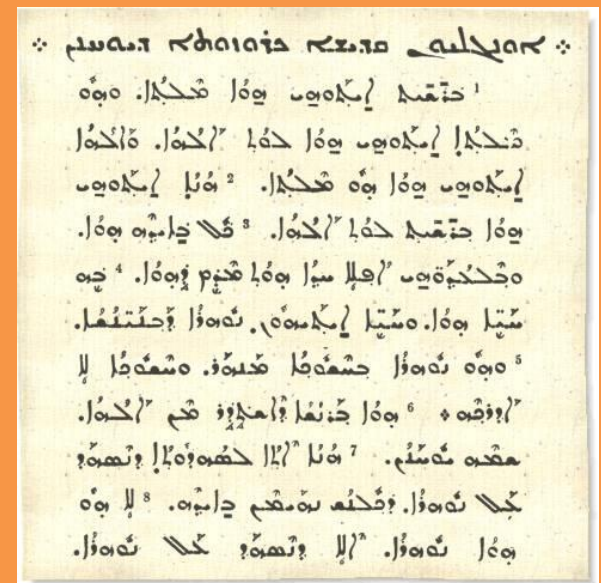 ܀ ܐܘܢܓܠܝܘܢ ܩܕܝܫܐ ܟܪܘܙܘܬܐ ܕܝܘܚܢܢ ܀
1 ܒܪܫܝܬ ܐܝܬܘܗܝ ܗܘܐ ܡܠܬܐ. ܘܗܘ
ܡܠܬܐ ܐܝܬܘܗܝ ܗܘܐ ܠܘܬ ܐܠܗܐ. ܘܐܠܗܐ
ܐܝܬܘܗܝ ܗܘܐ ܗܘ ܡܠܬܐ. 2 ܗܢܐ ܐܝܬܘܗܝ
ܗܘܐ ܒܪܫܝܬ ܠܘܬ ܐܠܗܐ. 3 ܟܠ ܒܐܝܕܗ ܗܘܐ.
ܘܒܠܥܕܘܗܝ ܐܦܠܐ ܚܕܐ ܗܘܬ ܡܕܡ ܕܗܘܐ. 4 ܒܗ
ܚܝܐ ܗܘܐ. ܘܚܝܐ ܐܝܬܝܗܘܢ ܢܘܗܪܐ ܕܒܢܝܢܫܐ.
5 ܘܗܘ ܢܘܗܪܐ ܒܚܫܘܟܐ ܡܢܗܪ. ܘܚܫܘܟܐ ܠܐ
ܐܕܪܟܗ ܀ 6 ܗܘܐ ܒܪܢܫܐ ܕܐܫܬܕܪ ܡܢ ܐܠܗܐ.
ܫܡܗ ܝܘܚܢܢ. 7 ܗܢܐ ܐܬܐ ܠܣܗܕܘܬܐ ܕܢܣܗܕ
ܥܠ ܢܘܗܪܐ. ܕܟܠܢܫ ܢܗܝܡܢ ܒܐܝܕܗ. 8 ܠܐ ܗܘ
ܗܘܐ ܢܘܗܪܐ. ܐܠܐ ܕܢܣܗܕ ܥܠ ܢܘܗܪܐ.